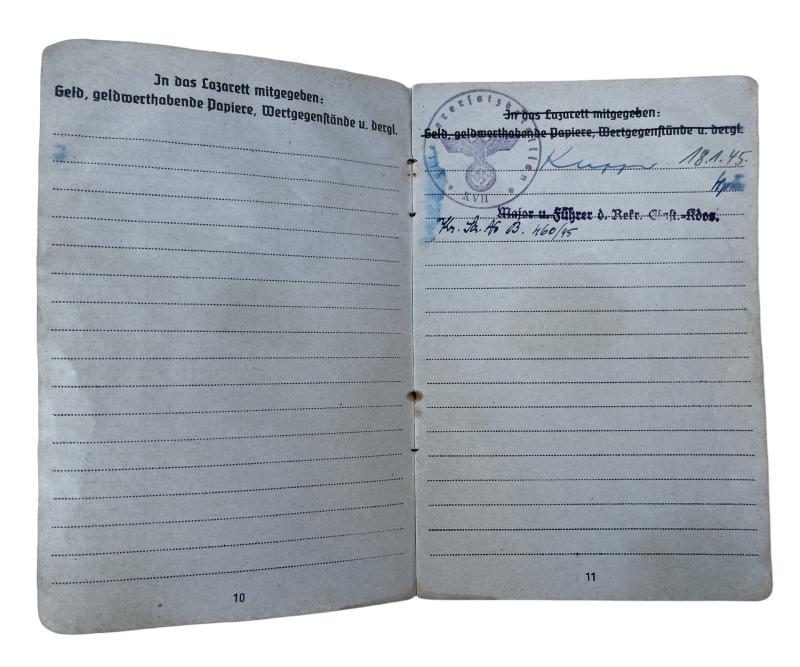 In das Lazarett mitgegeben:
Geld, geldwerthabende Papiere, Wertgegenstände u. dergl.
10
In das Lazarett mitgegeben:
Geld, geldwerthabende Papiere, Wertgegenstände u. dergl.
XVII
18.1.45.
Major u. Führer d. Rekr. Einst.-Kdos.
B. 460/45
11